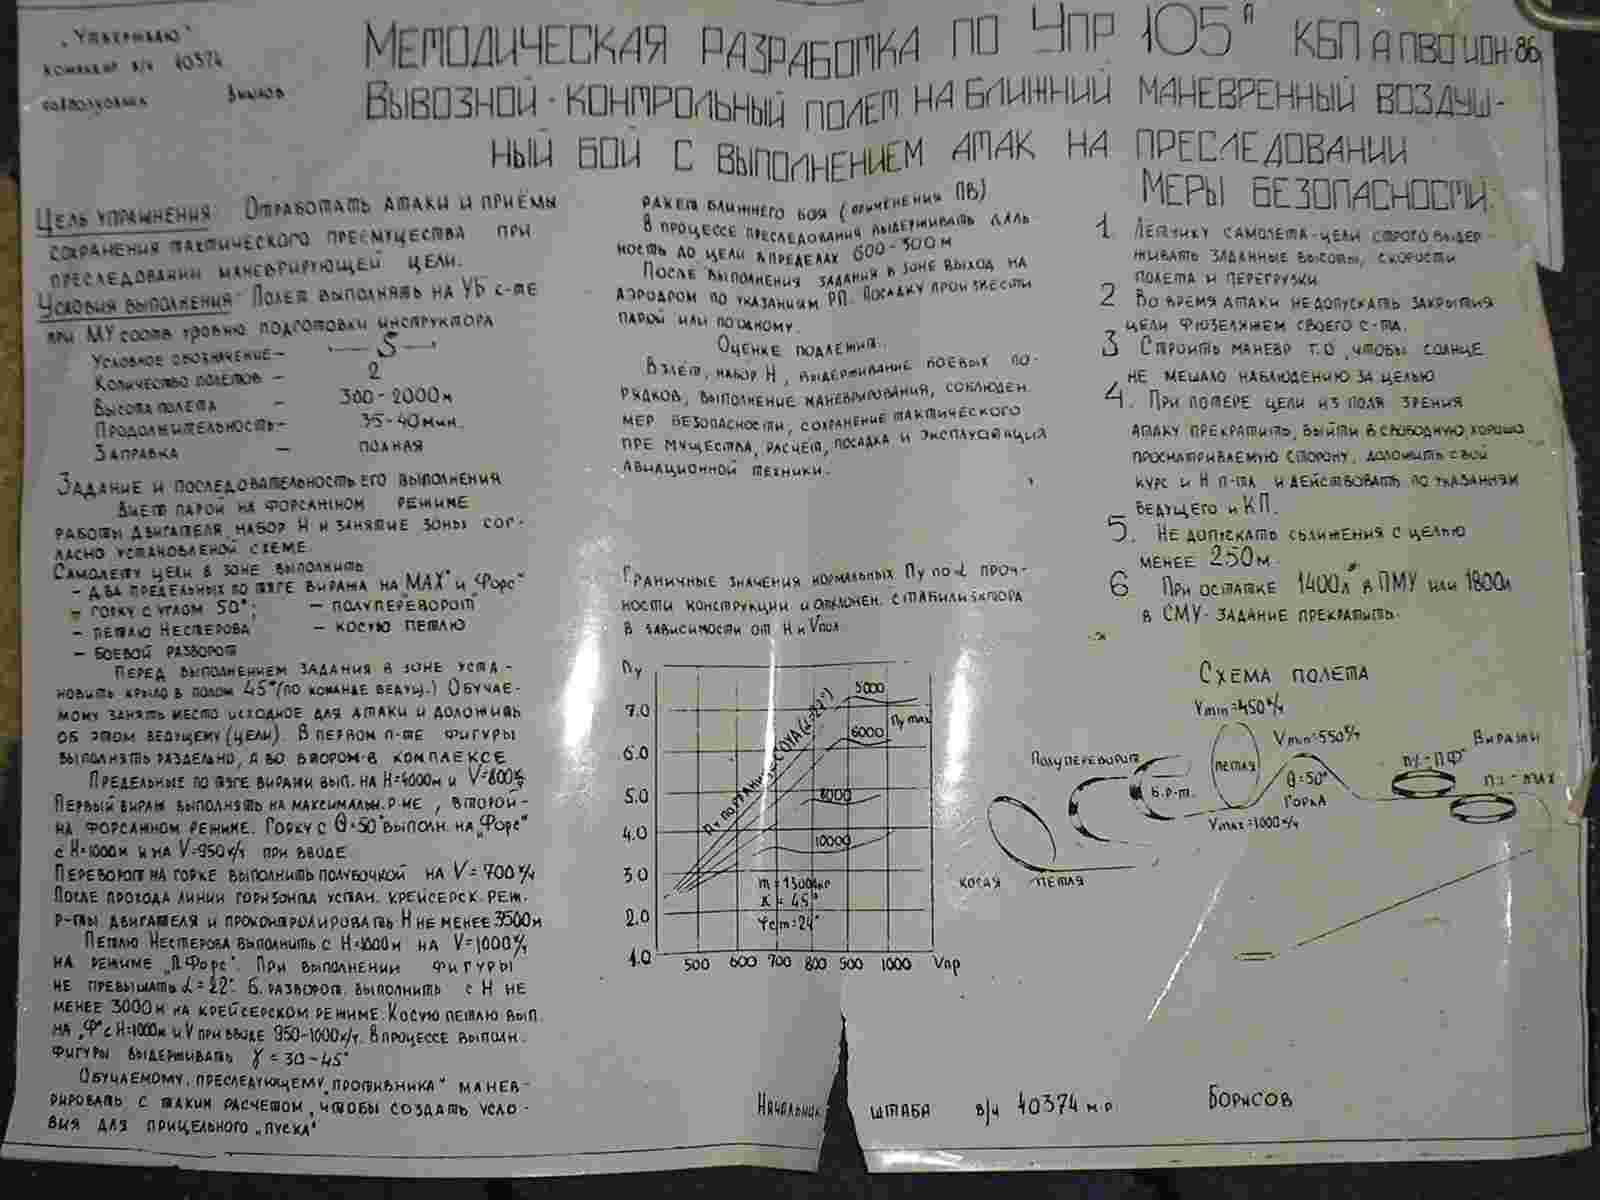 „Утверждаю"
командир в/ч 40374
подполковник
Методическая разработка по Упр 105п КБП А ПВО ИОН-86
Вывозной-контрольный полет на ближний маневренный воздуш-
ный бой с выполнением атак на преследовании
Цель упражнения: Отработать атаки и приёмы
сохранения тактического преимущества при
преследовании маневрирующей цели.
Условия выполнения: Полет выполнять на УБ с-те
при МУ соотв. уровню подготовки инструктора
Условное обозначение – 5
Количество полетов – 2
Высота полета – 300-2000м
Продолжительность – 35-40мин.
Заправка – полная
Задание и последовательность его выполнения
Взлет парой на форсажном режиме
работы двигателя, набор Н и занятие зоны сог-
ласно установленой схеме.
Самолету цели в зоне выполнить
– два предельных по тяге виража на „МАХ" и „Форс"
– горку с углом 50°; – полупереворот
– петлю Нестерова – косую петлю
– боевой разворот
Перед выполнением задания в зоне уста-
новить крыло в полож 45° (по команде ведущ.) Обучае-
мому занять место исходное для атаки и доложить
об этом ведущему (цели). В первом п-те фигуры
выполнять раздельно, а во втором-в комплексе
Предельные по тяге виражи вып. на Н=4000м и V=800к/ч
Первый вираж выполнять на максимальн. р-ме, второй-
на форсажном режиме. Горку с θ=50° выполн. на „Форс"
с Н=1000м и на V=950к/ч при вводе.
Переворот на горке выполнить полубочкой на V=700к/ч
После прохода линии горизонта устан. крейсерск. реж.
р-ты двигателя и проконтролировать Н не менее 3500м
Петлю Нестерова выполнить с Н=1000м на V=1000к/ч
на режиме „П.Форс". При выполнении фигуры
не превышать α=22°. Б.разворот выполнить с Н не
менее 3000м на крейсерском режиме. Косую петлю вып.
на „Ф" с Н=1000м и V при вводе 950-1000к/ч. В процессе выполн.
фигуры выдерживать γ=30-45°
Обучаемому, преследующему „противника" манев-
рировать с таким расчетом, чтобы создать усло-
вия для прицельного „пуска"
ракет ближнего боя (применения ПВ)
В процессе преследования выдерживать даль-
ность до цели в пределах 600-500м
После выполнения задания в зоне выход на
аэродром по указаниям РП. Посадку произвести
парой или по одному.
Оценке подлежит:
Взлёт, набор Н, выдерживание боевых по-
рядков, выполнение маневрирования, соблюден.
мер безопасности, сохранение тактического
преимущества, расчёт, посадка и эксплуатация
авиационной техники.
Граничные значения нормальных Пу по α проч-
ности конструкции и отклонен. стабилизатора
в зависимости от Н и Vпол.
Пу
7.0
6.0
5.0
4.0
3.0
2.0
1.0
500 600 700 800 900 1000 Vпр
Пу по границе СОУА (α=22°)
5000
6000
Пу мах
8000
10000
m=15000кг
Χ=45°
φст=24°
Меры безопасности:
1. Летчику самолета-цели строго выдер-
живать заданные высоты, скорости
полета и перегрузки.
2. Во время атаки не допускать закрытия
цели фюзеляжем своего с-та.
3. Строить маневр т.о, чтобы солнце
не мешало наблюдению за целью
4. При потере цели из поля зрения
атаку прекратить, выйти в свободную, хорошо
просматриваемую сторону, доложить свой
курс и Н п-та и действовать по указаниям
ведущего и КП.
5. Не допускать сближения с целью
менее 250м.
6. При остатке 1400л в ПМУ или 1800л
в СМУ-задание прекратить.
Схема полета
Vmin=450к/ч
Vmin=550к/ч
Виражи
Полупереворот
петля
θ=50°
Горка
б.р-т.
Vmax=1000к/ч
косая петля
Начальник штаба в/ч 40374 м-р Борисов